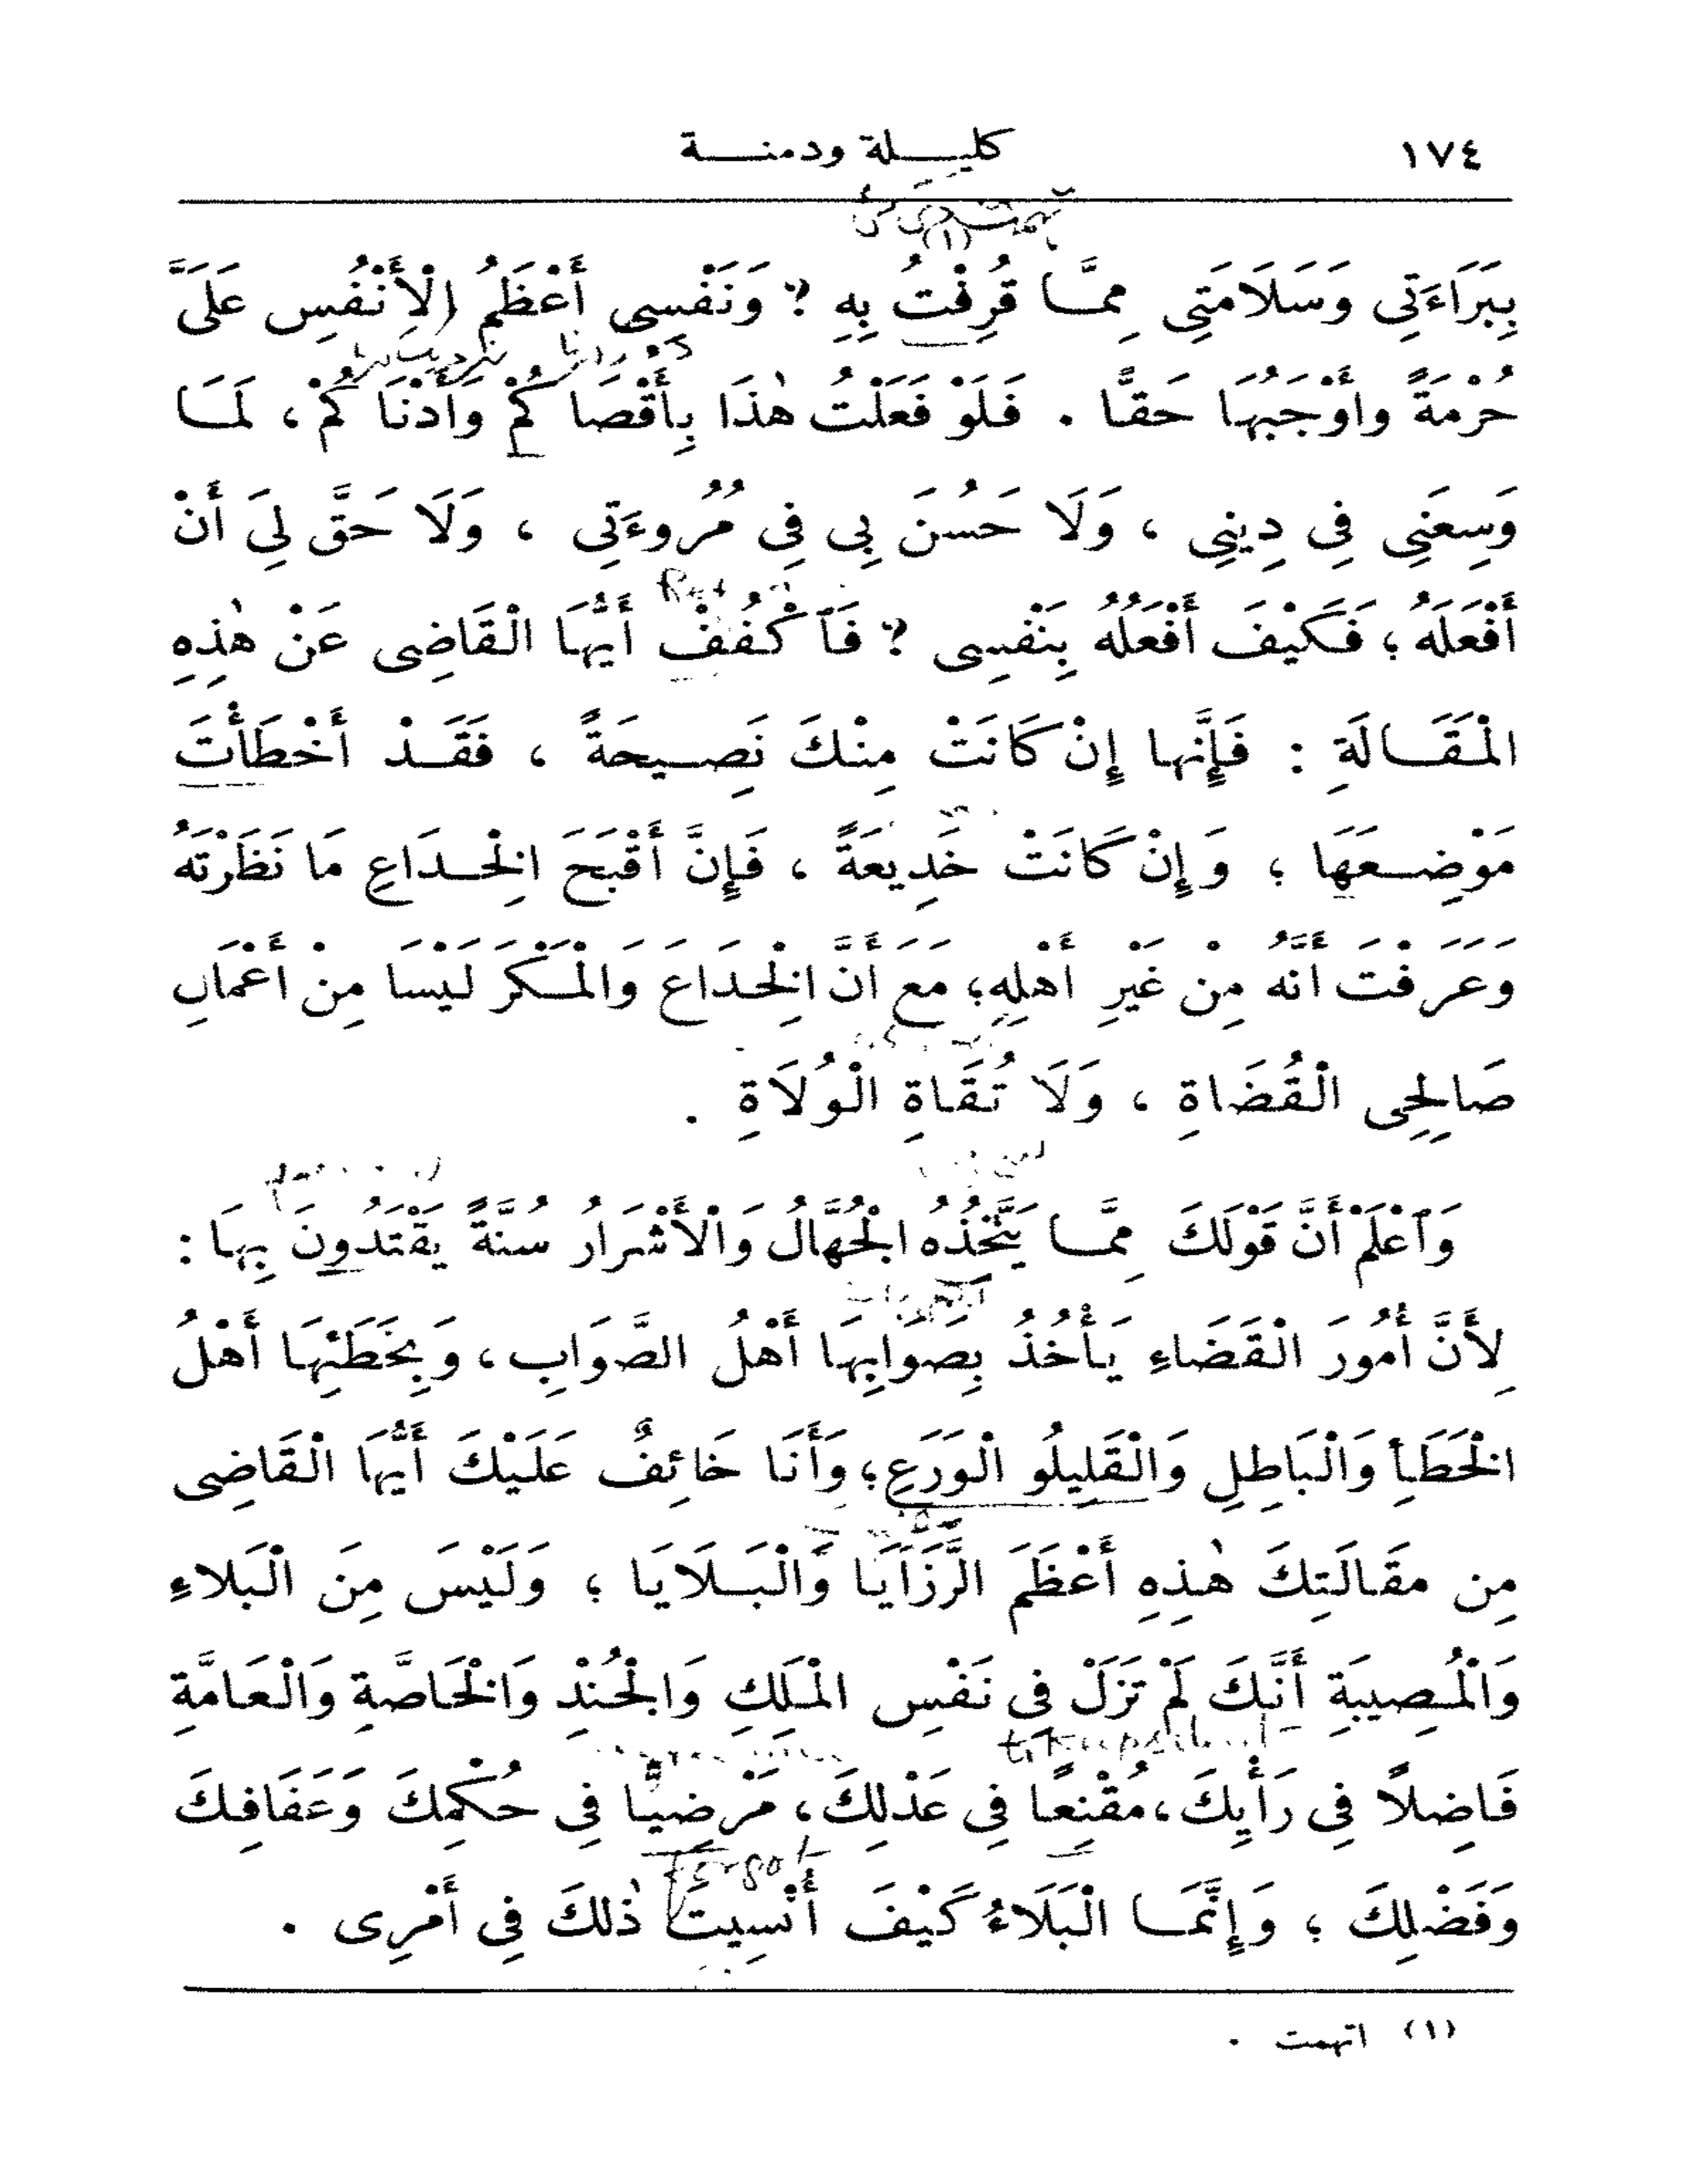 ١٧٤ كليلة ودمنة
(١)
بِبَرَاءَتِى وَسَلَامَتِى مِمَّا قُرِفْتُ بِهِ ؟ وَنَفْسِى أَعْظَمُ الْأَنْفُسِ عَلَىَّ
حُرْمَةً وأَوْجَبُهَا حَقًّا . فَلَوْ فَعَلْتُ هٰذَا بِأَقْصَاكُمْ وَأَدْنَاكُمْ ، لَمَا
وَسِعَنِى فِى دِينِى ، وَلَا حَسُنَ بِى فِى مُرُوءَتِى ، وَلَا حَقَّ لِىَ أَنْ
أَفْعَلَهُ ؛ فَكَيْفَ أَفْعَلُهُ بِنَفْسِى ؟ فَٱكْفُفْ أَيُّهَا الْقَاضِى عَنْ هٰذِهِ
الْمَقَالَةِ : فَإِنَّها إِنْ كَانَتْ مِنْكَ نَصِيحَةً ، فَقَدْ أَخْطَأْتَ
مَوْضِعَهَا ؛ وَإِنْ كَانَتْ خَدِيعَةً ، فَإِنَّ أَقْبَحَ الْخِدَاعِ مَا نَظَرْتَهُ
وَعَرَفْتَ أَنَّهُ مِنْ غَيْرِ أَهْلِهِ؛ مَعَ أَنَّ الْخِدَاعَ وَالْمَكْرَ لَيْسَا مِنْ أَعْمَالِ
صَالِحِى الْقُضَاةِ ، وَلَا ثُقَاةِ الْوُلَاةِ .
وَٱعْلَمْ أَنَّ قَوْلَكَ مِمَّا يَتَّخِذُهُ الْجُهَّالُ وَالْأَشْرَارُ سُنَّةً يَقْتَدُونَ بِهَا :
لِأَنَّ أُمُورَ الْقَضَاءِ يَأْخُذُ بِصَوَابِهَا أَهْلُ الصَّوَابِ ، وَبِخَطَئِهَا أَهْلُ
الْخَطَأِ وَالْبَاطِلِ وَالْقَلِيلُو الْوَرَعِ ؛ وَأَنَا خَائِفٌ عَلَيْكَ أَيُّهَا الْقَاضِى
مِن مَقَالَتِكَ هٰذِهِ أَعْظَمَ الرَّزَايَا وَالْبَلَايَا ؛ وَلَيْسَ مِنَ الْبَلاءِ
وَالْمُصِيبَةِ أَنَّكَ لَمْ تَزَلْ فِى نَفْسِ الْمَلِكِ وَالْجُنْدِ وَالْخَاصَّةِ وَالْعَامَّةِ
فَاضِلًا فِى رَأْيِكَ ، مُقْنِعًا فِى عَدْلِكَ ، مَرْضِيًّا فِى حُكْمِكَ وَعَفَافِكَ
forgot
وَفَضْلِكَ ؛ وَإِنَّمَا الْبَلَاءُ كَيْفَ أُنْسِيتَ ذٰلكَ فِى أَمْرِى .
(١) اتهمت .